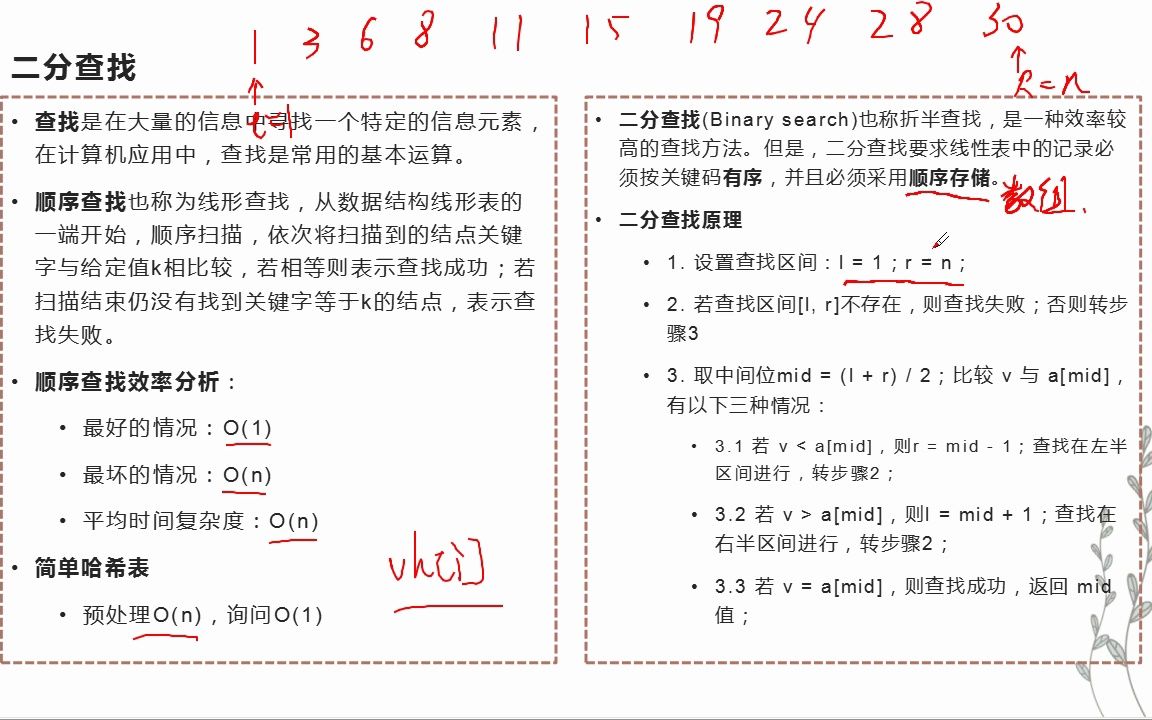 1 3 6 8 11 15 19 24 28 30
二分查找
R=n
l=1
• 查找是在大量的信息中寻找一个特定的信息元素，
在计算机应用中，查找是常用的基本运算。
• 顺序查找也称为线形查找，从数据结构线形表的
一端开始，顺序扫描，依次将扫描到的结点关键
字与给定值k相比较，若相等则表示查找成功；若
扫描结束仍没有找到关键字等于k的结点，表示查
找失败。
• 顺序查找效率分析：
• 最好的情况：O(1)
• 最坏的情况：O(n)
• 平均时间复杂度：O(n)
• 简单哈希表
• 预处理O(n)，询问O(1)
• 二分查找(Binary search)也称折半查找，是一种效率较
高的查找方法。但是，二分查找要求线性表中的记录必
须按关键码有序，并且必须采用顺序存储。
数组.
• 二分查找原理
• 1. 设置查找区间：l = 1；r = n；
• 2. 若查找区间[l, r]不存在，则查找失败；否则转步
骤3
• 3. 取中间位mid = (l + r) / 2；比较 v 与 a[mid]，
有以下三种情况：
• 3.1 若 v < a[mid]，则r = mid - 1；查找在左半
区间进行，转步骤2；
• 3.2 若 v > a[mid]，则l = mid + 1；查找在
右半区间进行，转步骤2；
• 3.3 若 v = a[mid]，则查找成功，返回 mid
值；